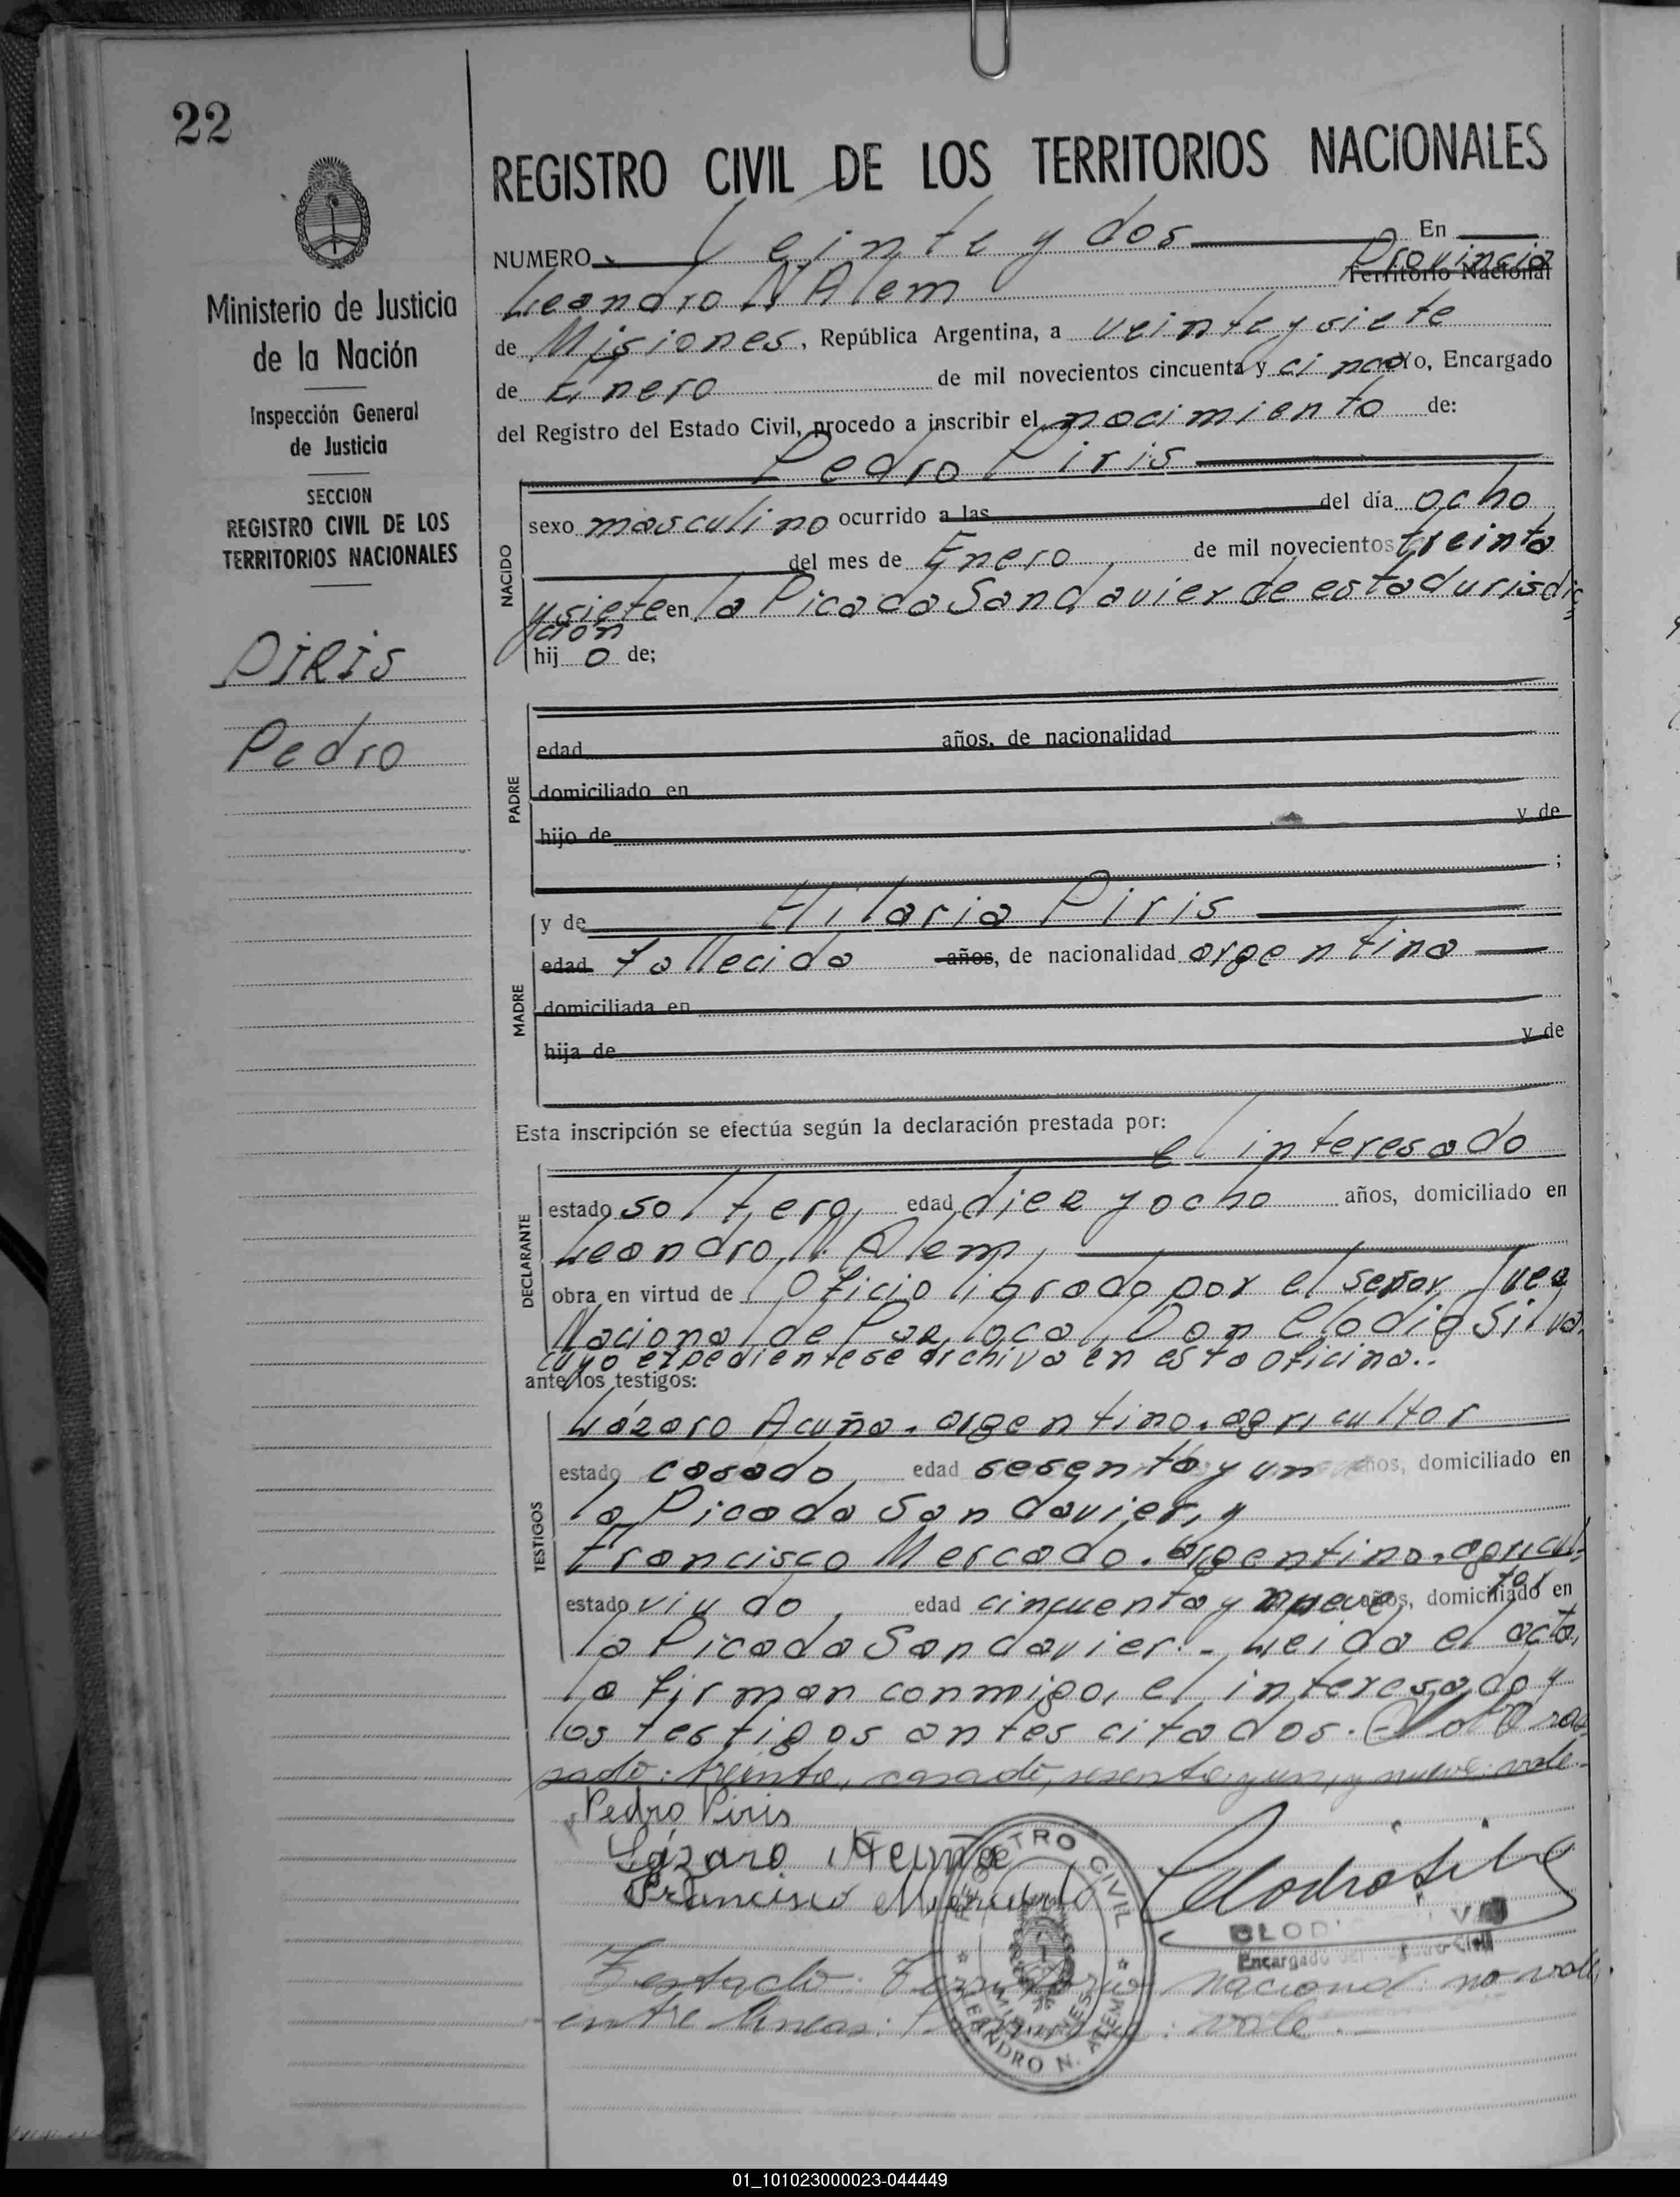 22
REGISTRO CIVIL DE LOS TERRITORIOS NACIONALES
NUMERO Veinte y dos En
Provincia
Leandro N Alem Territorio Nacional
de Misiones, República Argentina, a veinte y siete
de Enero de mil novecientos cincuenta y cinco Yo, Encargado
del Registro del Estado Civil, procedo a inscribir el nacimiento de:
Pedro Piris
Ministerio de Justicia
de la Nación
Inspección General
de Justicia
SECCION
REGISTRO CIVIL DE LOS
TERRITORIOS NACIONALES
PIRIS
Pedro
NACIDO
sexo masculino ocurrido a las del día ocho
del mes de Enero de mil novecientos treinta
y siete en la Picada San Javier de esta Jurisdic
ción
hij o de;
PADRE
edad años, de nacionalidad
domiciliado en
hijo de y de
;
MADRE
y de Hilaria Piris
edad fallecida años, de nacionalidad argentina
domiciliada en
hija de y de
Esta inscripción se efectúa según la declaración prestada por:
el interesado
DECLARANTE
estado soltero, edad diez y ocho años, domiciliado en
Leandro N. Alem,
obra en virtud de Oficio librado por el señor Juez
Nacional de Paz local Don Elodio Silva,
cuyo expediente se archiva en esta oficina..
ante los testigos:
TESTIGOS
Lázaro Acuña. argentino. agricultor
estado casado, edad sesenta y un años, domiciliado en
la Picada San Javier, y
Francisco Mercado. argentino. agricul-
tor
estado viudo, edad cincuenta y nueve años, domiciliado en
la Picada San Javier.- Leida el acta,
la firman conmigo, el interesado y
los testigos antes citados.- Sobre ras-
pado: treinta, casado, sesenta y un, y nueve: vale.-
Pedro Piris
Lázaro Acuña
Francisco Mercado
Elodio Silva
REGISTRO CIVIL
MISIONES
LEANDRO N. ALEM
Encargado del Registro Civil
Testado: Territorio nacional: no vale,
entre lineas: Provincia: vale.-
01_101023000023-044449